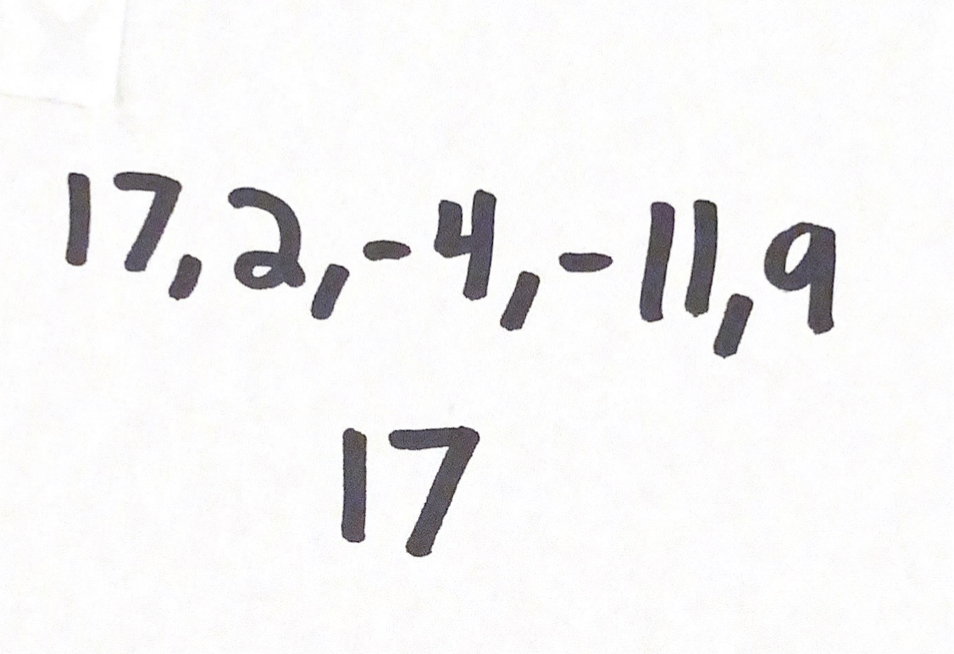 17,2,-4,-11,9
17